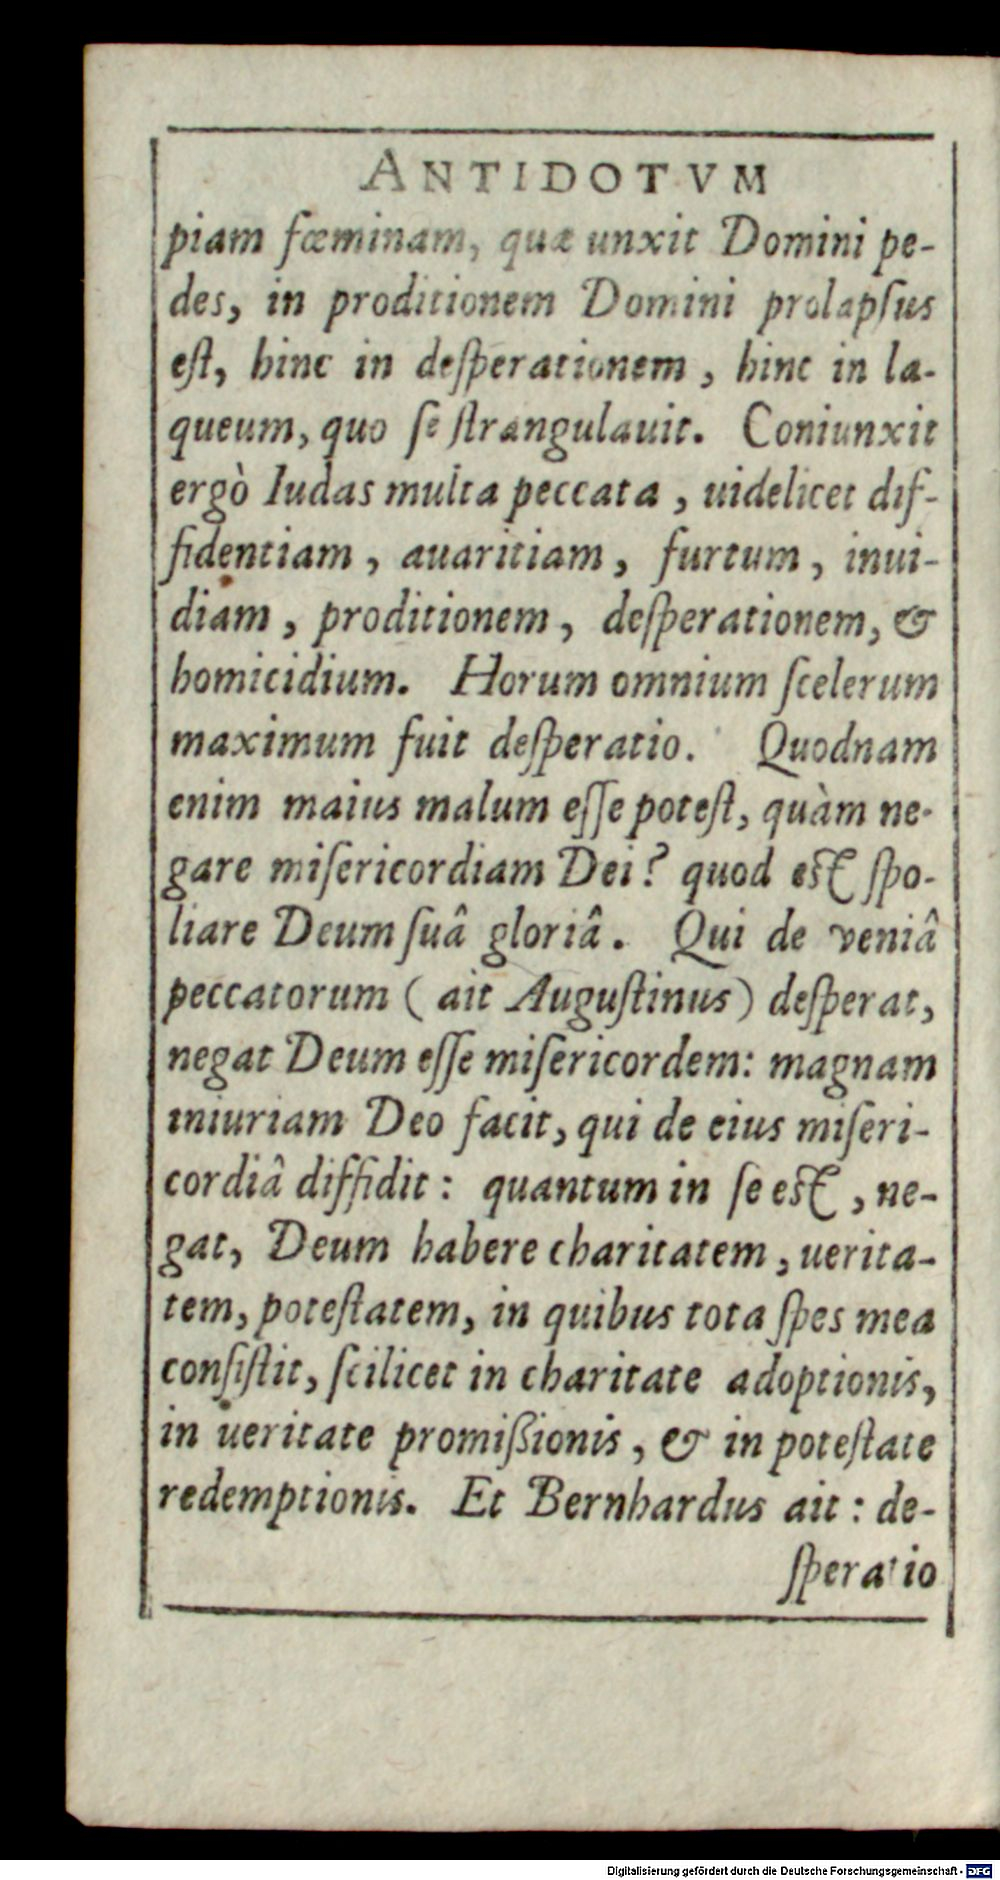 ANTIDOTVM
piam fœminam, quæ unxit Domini pe-
des, in proditionem Domini prolapſus
eſt, hinc in deſperationem, hinc in la-
queum, quo ſe ſtrangulauit. Coniunxit
ergò Iudas multa peccata, uidelicet dif-
fidentiam, auaritiam, furtum, inui-
diam, proditionem, deſperationem, &
homicidium. Horum omnium ſcelerum
maximum fuit deſperatio. Quodnam
enim maius malum eſſe poteſt, quàm ne-
gare miſericordiam Dei? quod est ſpo-
liare Deum ſuâ gloriâ. Qui de veniâ
peccatorum (ait Auguſtinus) deſperat,
negat Deum eſſe miſericordem: magnam
iniuriam Deo facit, qui de eius miſeri-
cordiâ diffidit: quantum in ſe est, ne-
gat, Deum habere charitatem, uerita-
tem, poteſtatem, in quibus tota ſpes mea
conſiſtit, ſcilicet in charitate adoptionis,
in ueritate promiſſionis, & in poteſtate
redemptionis. Et Bernhardus ait: de-
ſperatio
Digitalisierung gefördert durch die Deutsche Forschungsgemeinschaft - DFG